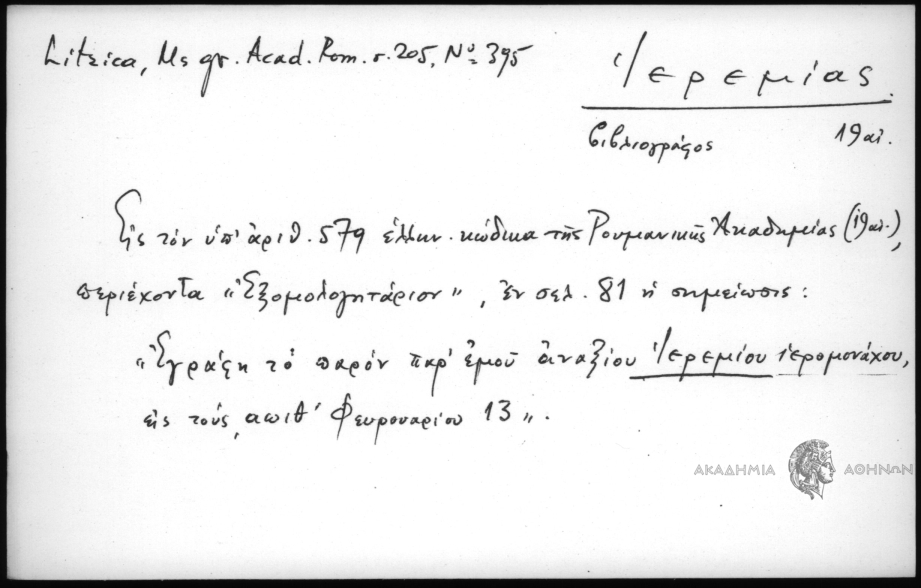 Litzica, Ms gr. Acad. Rom. σ. 205, Nº 395
Ἱερεμίας.
βιβλιογράφος 19 αἰ.
Εἰς τὸν ὑπ' ἀριθ. 579 ἑλλην. κώδικα τῆς Ρουμανικῆς Ἀκαδημίας (19 αἰ.),
περιέχοντα "Ἐξομολογητάριον", ἐν σελ. 81 ἡ σημείωσις:
"Ἐγράφη τὸ παρὸν παρ' ἐμοῦ ἀναξίου Ἱερεμίου ἱερομονάχου,
εἰς τοὺς ͵αωιθ' Φευρουαρίου 13".
ΑΚΑΔΗΜΙΑ ΑΘΗΝΩΝ